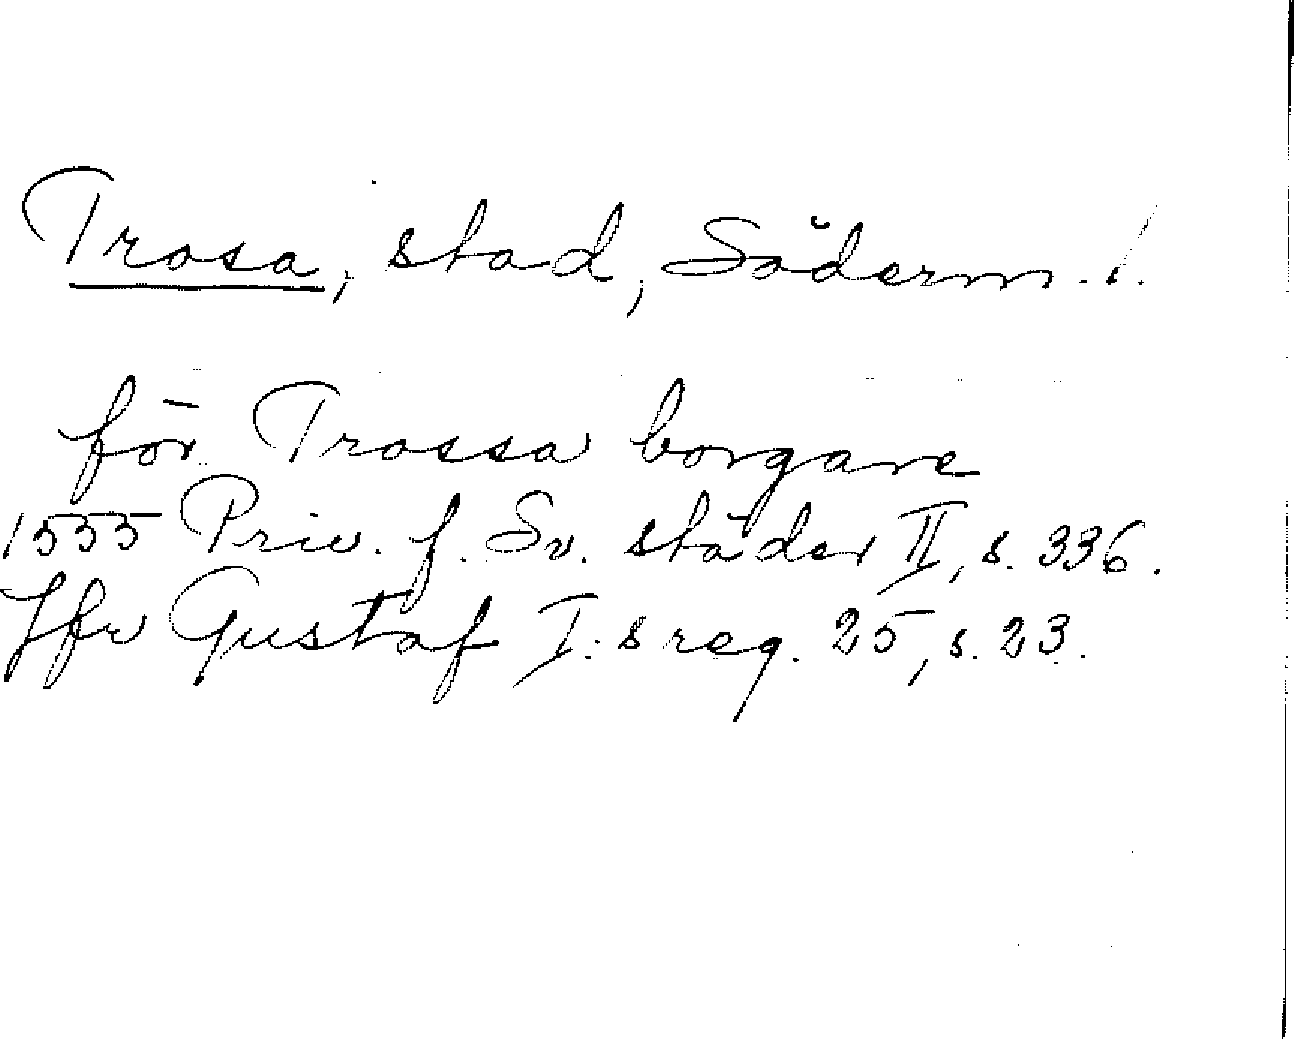 Trosa, stad, Söderm. l.
för Trossa borgare
1555 Priv. f. Sv. städer II, s. 336.
Jfr Gustaf I:s reg. 25, s. 23.